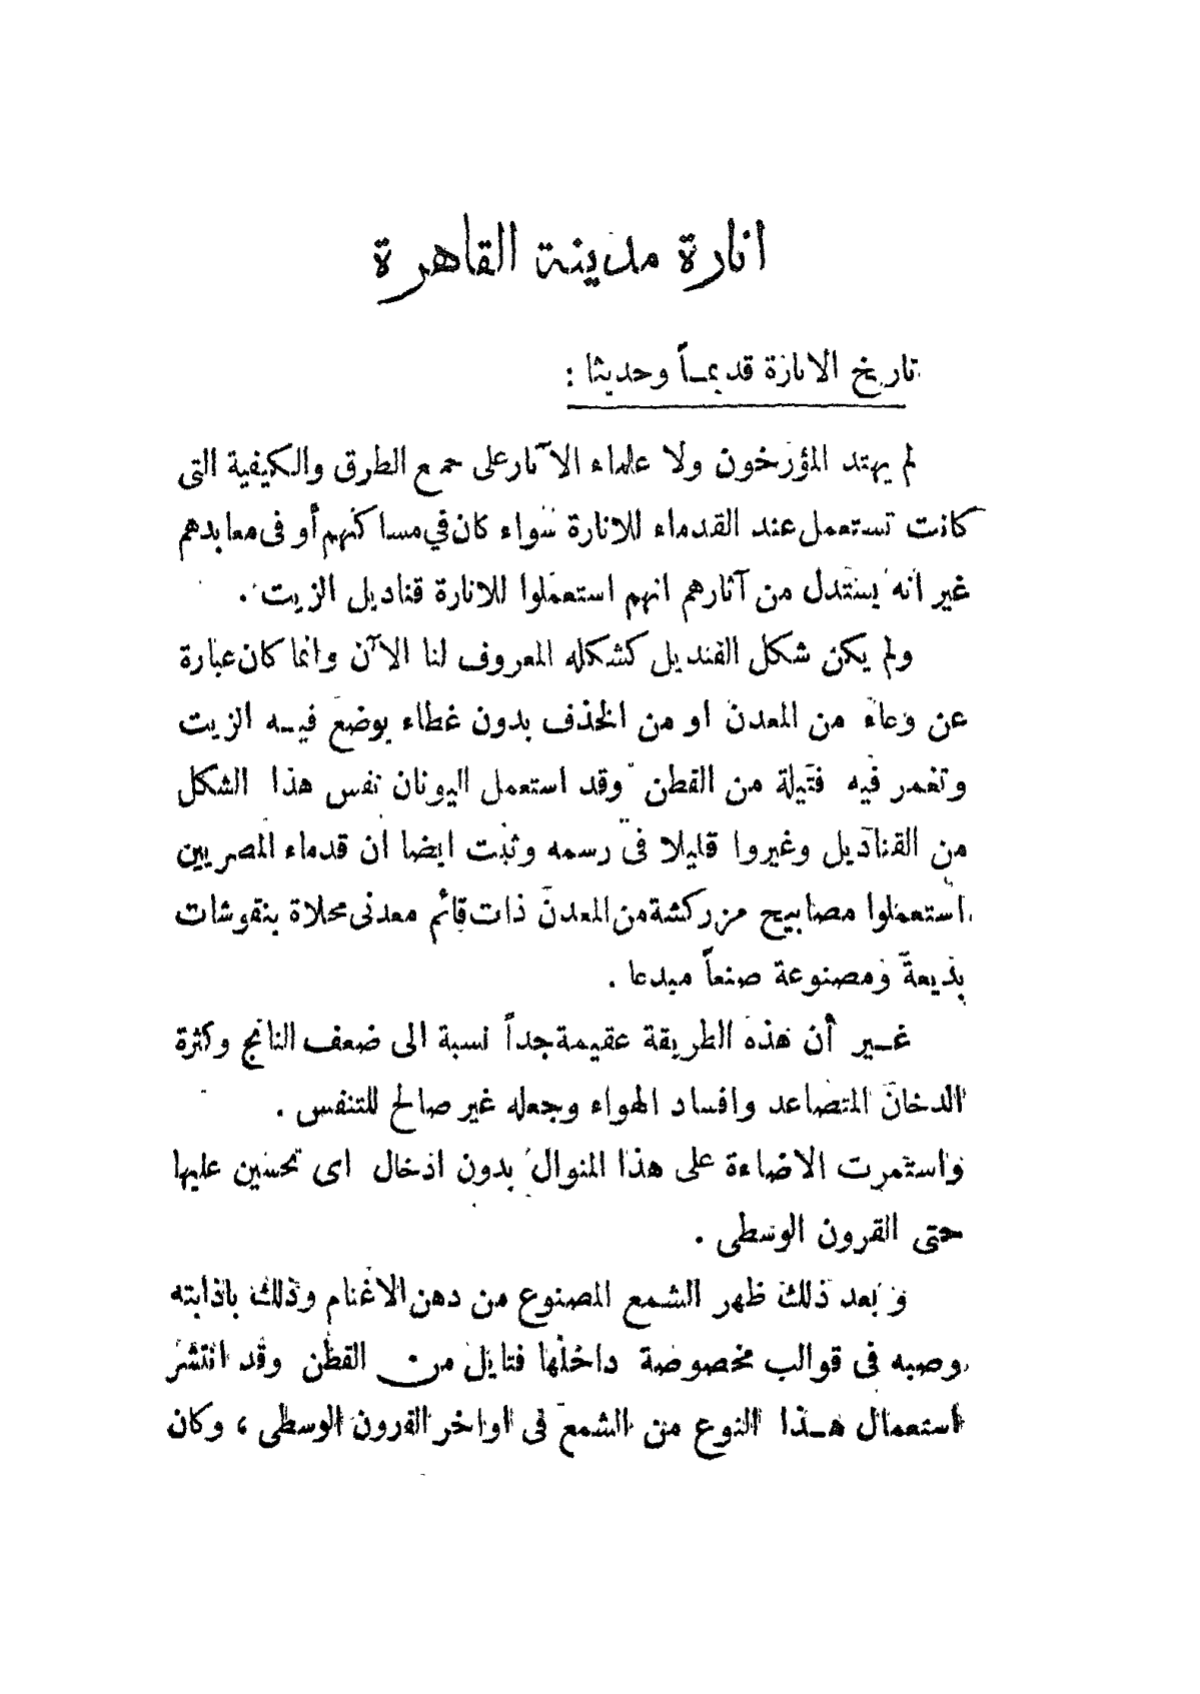 انارة مدينة القاهرة
تاريخ الانارة قديمـاً وحديثا :
لم يهتد المؤرخون ولا علماء الآثار على جميع الطرق والكيفية التى
كانت تستعمل عند القدماء للانارة سواء كان في مساكنهم أو فى معابدهم
غير انه يستدل من آثارهم انهم استعملوا للانارة قناديل الزيت .
ولم يكن شكل القنديل كشكله المعروف لنا الآن وانما كان عبارة
عن وعاء من المعدن او من الخذف بدون غطاء يوضع فيـه الزيت
وتغمر فيه فتيلة من القطن وقد استعمل اليونان نفس هذا الشكل
من القناديل وغيروا قليلا فى رسمه وثبت ايضا ان قدماء المصريين
استعملوا مصابيح مزركشة من المعدن ذات قائم معدنى محلاة بنقوشات
بديعة ومصنوعة صنعاً مبدعا .
غـير أن هذه الطريقة عقيمة جداً نسبة الى ضعف الناتج وكثرة
الدخان المتصاعد وافساد الهواء وجعله غير صالح للتنفس .
واستمرت الاضاءة على هذا المنوال بدون ادخال اى تحسين عليها
حتى القرون الوسطى .
وبعد ذلك ظهر الشمع المصنوع من دهن الاغنام وذلك باذابته
وصبه فى قوالب مخصوصة داخلها فتايل من القطن وقد انتشر
استعمال هـذا النوع من الشمع فى اواخر القرون الوسطى ، وكان